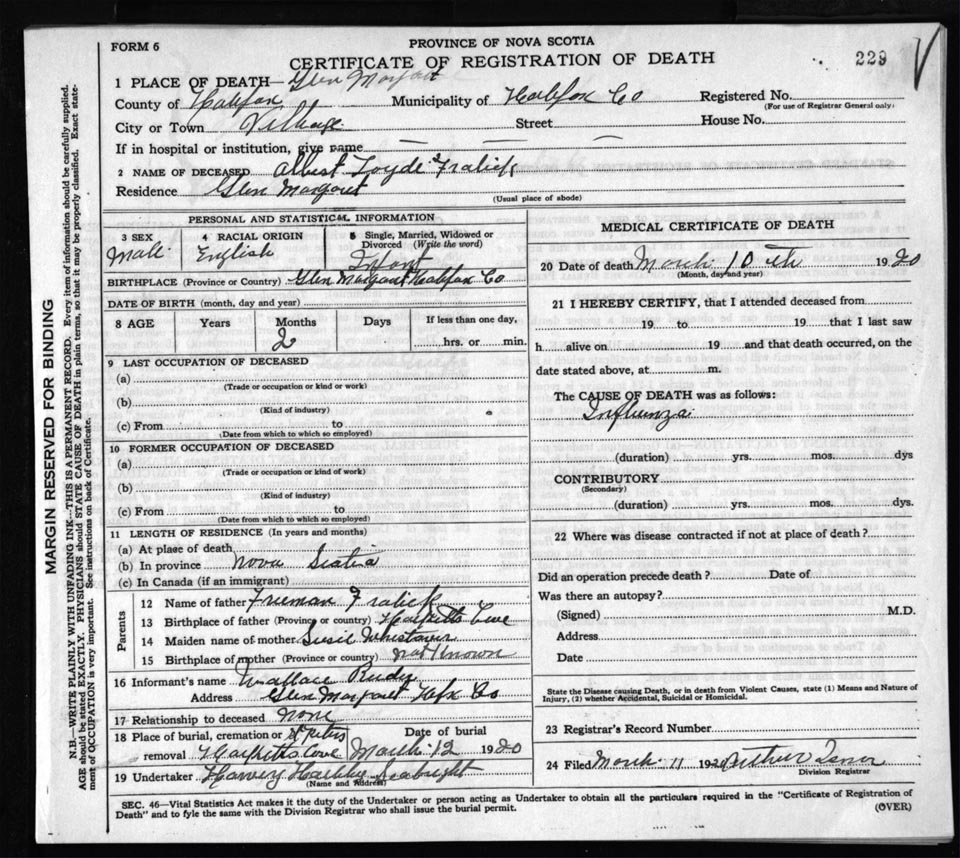 FORM 6
PROVINCE OF NOVA SCOTIA
CERTIFICATE OF REGISTRATION OF DEATH
229
1 PLACE OF DEATH— Glen Margaret
County of Halifax Municipality of Halifax Co Registered No.
(For use of Registrar General only)
City or Town Village Street House No.
If in hospital or institution, give name
2 NAME OF DECEASED Albert Loyde Fralick
Residence Glen Margaret
(Usual place of abode)
PERSONAL AND STATISTICAL INFORMATION
3 SEX 4 RACIAL ORIGIN 5 Single, Married, Widowed or
Divorced (Write the word)
Male English Infant
BIRTHPLACE (Province or Country) Glen Margaret Halifax Co
DATE OF BIRTH (month, day and year)
8 AGE Years Months Days If less than one day,
2 hrs. or min.
9 LAST OCCUPATION OF DECEASED
(a)
(Trade or occupation or kind or work)
(b)
(Kind of industry)
(c) From to
(Date from which to which so employed)
10 FORMER OCCUPATION OF DECEASED
(a)
(Trade or occupation or kind of work)
(b)
(Kind of industry)
(c) From to
(Date from which to which so employed)
11 LENGTH OF RESIDENCE (In years and months)
(a) At place of death
(b) In province Nova Scotia
(c) In Canada (if an immigrant)
Parents
12 Name of father Freeman Fralick
13 Birthplace of father (Province or country) Cove
14 Maiden name of mother Susie
15 Birthplace of mother (Province or country) not Known
16 Informant's name Wallace Rudy
Address Glen Margaret Hfx Co
17 Relationship to deceased None
18 Place of burial, cremation or St Peters Date of burial
removal Cove March 12 1920
19 Undertaker Harvey Hubley Seabright
(Name and Address)
MEDICAL CERTIFICATE OF DEATH
20 Date of death March 10 th 1920
(Month, day and year)
21 I HEREBY CERTIFY, that I attended deceased from
19 to 19 that I last saw
h alive on 19 and that death occurred, on the
date stated above, at m.
The CAUSE OF DEATH was as follows:
Influenza
(duration) yrs. mos. dys
CONTRIBUTORY
(Secondary)
(duration) yrs. mos. dys.
22 Where was disease contracted if not at place of death?
Did an operation precede death? Date of
Was there an autopsy?
(Signed) M.D.
Address
Date
State the Disease causing Death, or in death from Violent Causes, state (1) Means and Nature of
Injury, (2) whether Accidental, Suicidal or Homicidal.
23 Registrar's Record Number
24 Filed March 11 1920 Arthur
Division Registrar
SEC. 46—Vital Statistics Act makes it the duty of the Undertaker or person acting as Undertaker to obtain all the particulars required in the "Certificate of Registration of
Death" and to fyle the same with the Division Registrar who shall issue the burial permit.
(OVER)
MARGIN RESERVED FOR BINDING
N.B.—WRITE PLAINLY WITH UNFADING INK—THIS IS A PERMANENT RECORD. Every item of information should be carefully supplied.
AGE should be stated EXACTLY. PHYSICIANS should STATE CAUSE OF DEATH in plain terms, so that it may be properly classified. Exact state-
ment of OCCUPATION is very important. See instructions on back of Certificate.